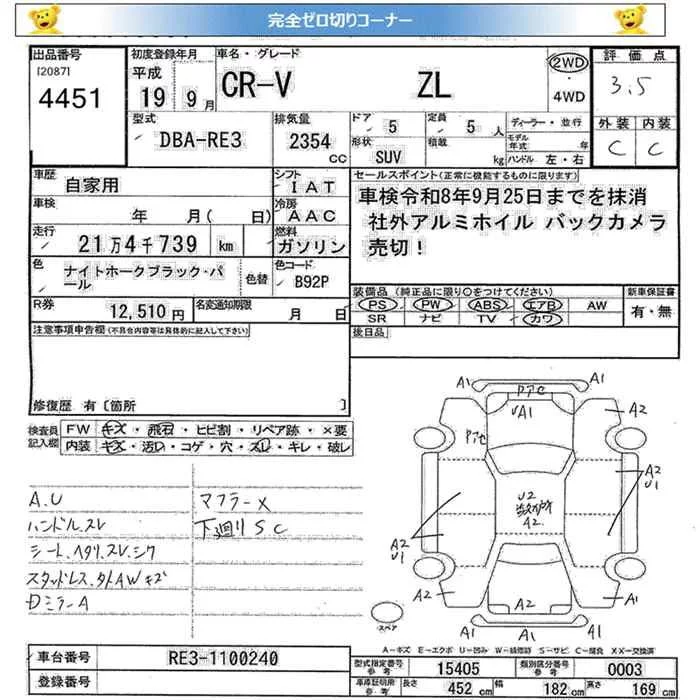 完全ゼロ切りコーナー
出品番号
[2087]
4451
初度登録年月
平成
19 9月
車名・グレード
CR-V ZL
2WD
4WD
評価点
3.5
外装 内装
C C
型式
DBA-RE3
排気量
2354 cc
ドア 5
定員 5 人
形状
SUV
積載 kg
ディーラー・並行
モデル年式 年
ハンドル 左・右
車歴
自家用
シフト
IAT
車検
年 月( 日)
冷房
AAC
走行
21万4千739 km
燃料
ガソリン
色
ナイトホークブラック・パール
色替
色コード
B92P
R券
12,510円
名変通知期限
月 日
セールスポイント(正常に機能するものに限ります)
車検令和8年9月25日までを抹消
社外アルミホイル バックカメラ
売切!
装備品(純正品に限り○をつけてください)
PS PW ABS エアB AW
SR ナビ TV カワ
新車保証書
有・無
後日品
注意事項申告欄(不具合内容等は具体的に記入して下さい)
修復歴 有〔箇所 〕
検査員記入欄
FW キズ・飛石・ヒビ割・リペア跡・×要
内装 キズ・汚レ・コゲ・穴・スレ・キレ・破レ
A.U
ハンドル.スレ
シート.ヘタリ.スレ.シワ
スタッドレス.タトAWキズ
Dミラー A
マフラー X
下廻り SC
A1 A1
アアC
A2 A1 A2
アアC
A2 U1
U2
A2
A2 U1
A2 A2
A1 A1
スペア
A-キズ E-エクボ U-凹み W-補修跡 S-サビ C-腐食 XX-交換済
車台番号
RE3-1100240
登録番号
型式指定番号 参考
15405
類別区分番号 参考
0003
車庫証明用 参考
長さ 452 cm 幅 182 cm 高さ 169 cm